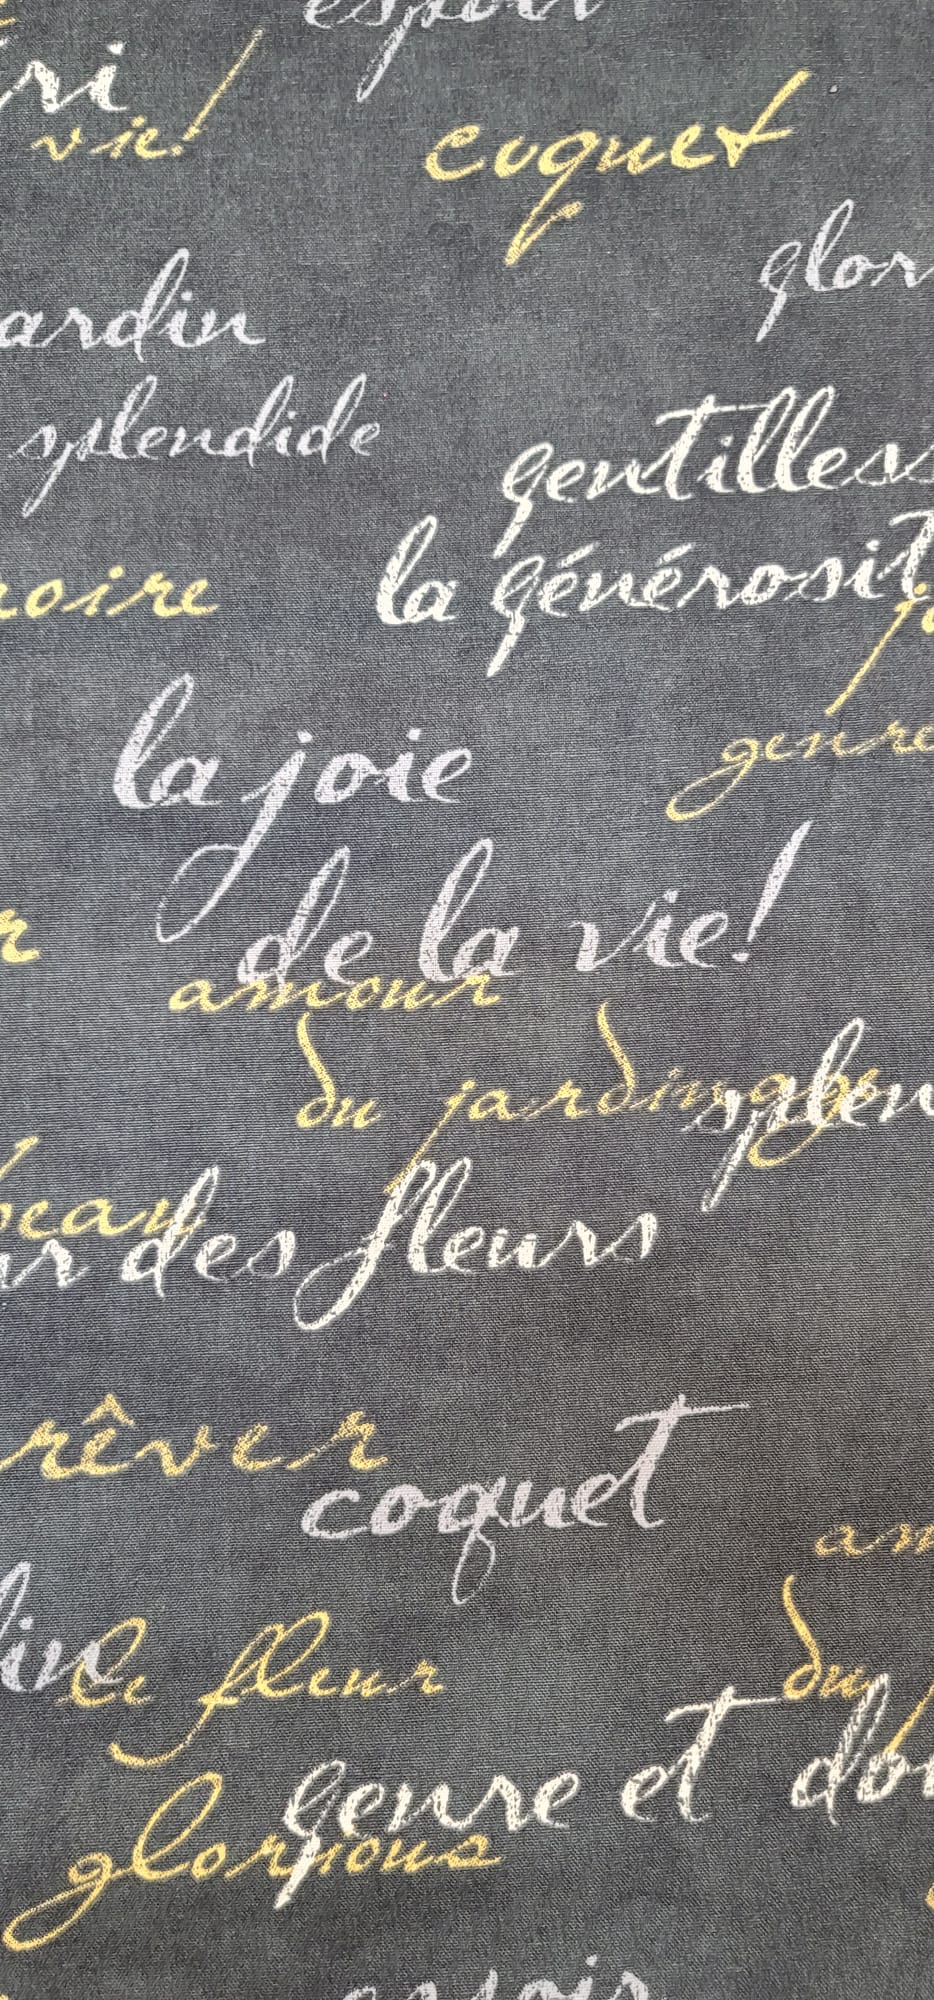 espoir
ri
vie!
coquet
glor
ardin
splendide
gentilles
la générosit
noire
jo
la joie
genre
de la vie!
r
amour
du jardinage
splen
beau
ur des fleurs
rêver
coquet
am
din
le fleur
du j
genre et dou
glorious
espoir